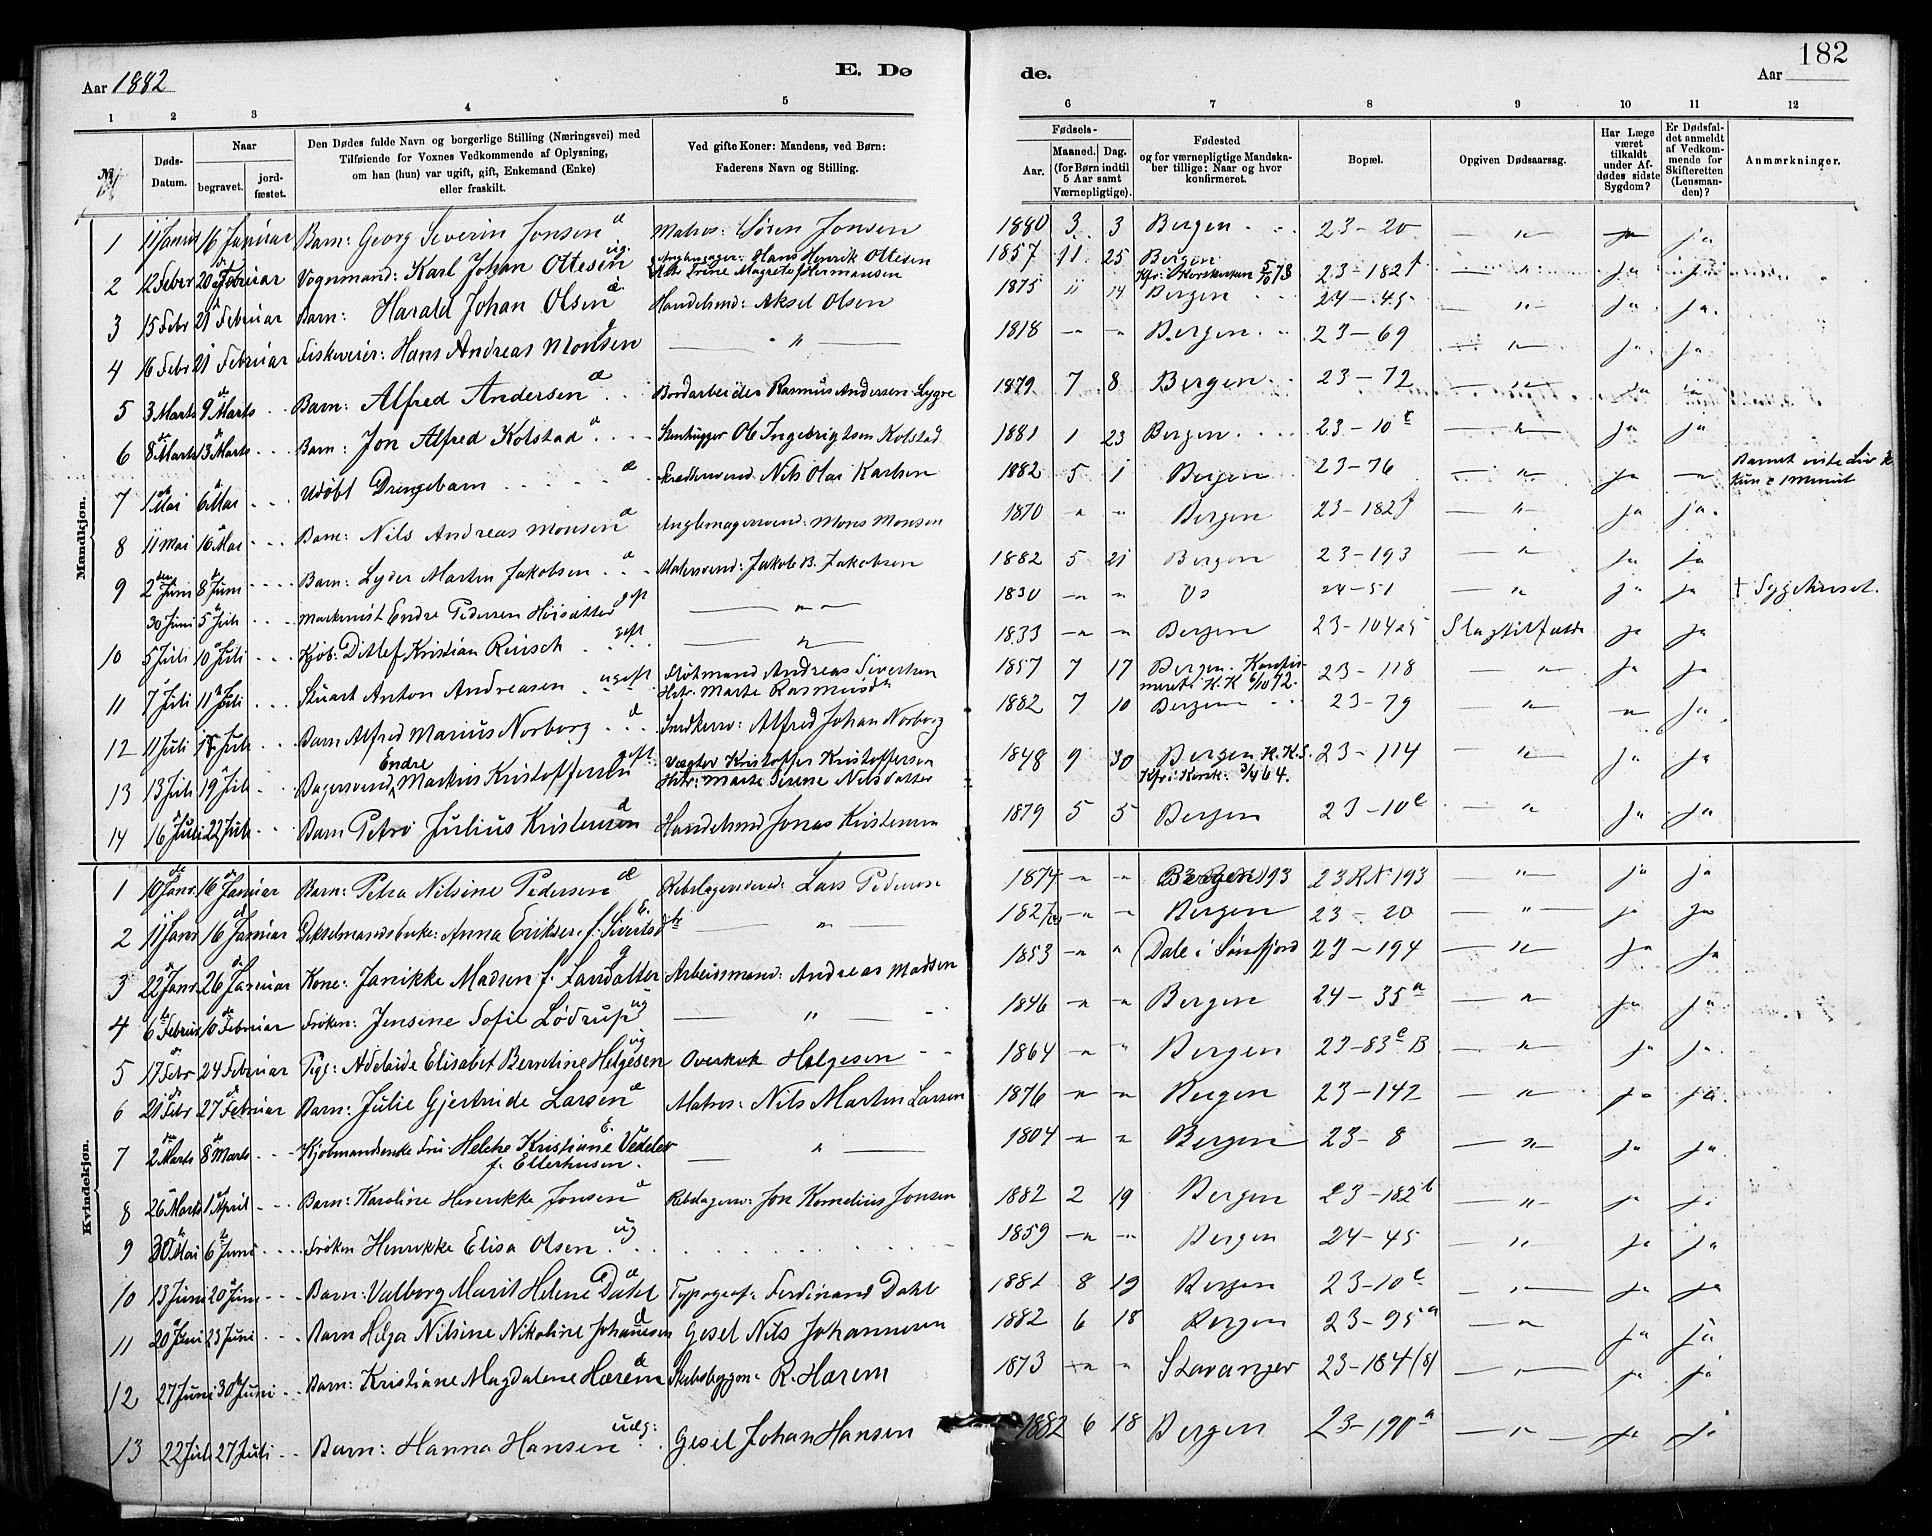 182
Aar 1882
E. Dø
de.
Aar
1 2 3 4 5 6 7 8 9 10 11 12
№
Døds-Datum.
Naar
begravet.
jord-fæstet.
Den Dødes fulde Navn og borgerlige Stilling (Næringsvei) med
Tilføiende for Voxnes Vedkommende af Oplysning,
om han (hun) var ugift, gift, Enkemand (Enke)
eller fraskilt.
Ved gifte Koner: Mandens, ved Børn:
Faderens Navn og Stilling.
Fødsels-
Aar.
Maaned. Dag.
(for Børn indtil
5 Aar samt
Værnepligtige).
Fødested
og for værnepligtige Mandska-
ber tillige: Naar og hvor
konfirmeret.
Bopæl.
Opgiven Dødsaarsag.
Har Læge
været
tilkaldt
under Af-
dødes sidste
Sygdom?
Er Dødsfal-
det anmeldt
af Vedkom-
mende for
Skifteretten
(Lensman-
den)?
Anmærkninger.
Mandkjøn.
1 11 Januar 16 Januar Barn: Georg Severin Jonsen Matros: Søren Jonsen 1880 3 3 Bergen 23-20 — " — ja ja
2 12 Febr 20 Februar Vognmand: Karl Johan Ottesen ug. Hans Henrik Ottesen 1857 11 25 Bergen 23-182f — " — ja ja
Trine Magrete Hermansen
3 15 Febr 21 Februar Barn: Harald Johan Olsen Handelsmd: Aksel Olsen 1875 11 14 Bergen 24-45 — " — ja ja.
4 16 Febr 21 Februar Fiskeveier: Hans Andreas Monsen g — " — 1818 — " — " Bergen 23-69 — " — ja ja
5 3 Marts 9 Marts Barn: Alfred Andersen Bordarbeider Rasmus Andersen Lygre 1879 7 8 Bergen 23-72 — " — ja ja
6 8 Marts 13 Marts Barn: Jon Alfred Kolstad Stenhugger Ole Ingebrigtsen Kolstad 1881 1 23 Bergen 23-10c — " — ja ja
7 1 Mai 6 Mai Udøbt Drengebarn Nils Olai Karlsen 1882 5 1 Bergen 23-76 — " — ja — Barnet viste Liv
kun 1 Minut
8 11 Mai 16 Mai Barn: Nils Andreas Monsen Mons Monsen 1870 — " — " Bergen 23-182f — " — ja ja.
9 2 Juni 8 Juni Barn: Lyder Martin Jakobsen Malersvend: Jakob B. Jakobsen 1882 5 21 Bergen 23-193 — " — ja ja
30 Juni 5 Juli Endre Pedersen gift — " — 1830 — " — " Vos 24-51 — " — ja ja † Sygehuset.
10 5 Juli 10 Juli Kjøb: Ditlef Kristian Reusch gift — " — 1833 — " — " Bergen 23-104 Slagtilfælde ja ja
11 7 Juli 11 Juli Stuart Anton Andreasen ugift Andreas Sivertsen 1857 7 17 Bergen. Konfir- 23-118 — " — ja ja
Marte Rasmusdtr meret K.K 6/10 72.
12 11 Juli Juli Barn Alfred Marius Norborg Alfred Johan Norborg 1882 7 10 Bergen 23-79 — " — " ja.
13 13 Juli 19 Juli Bagersvend Endre Markus Kristoffersen gift Vægter Kristoffer Kristoffersen 1848 9 30 Bergen K.K. 23-114 — " — ja ja
Marte Serene Nilsdatter Kfr: Korsk: 3/4 64.
14 16 Juli 22 Juli Barn Petro Julius Kristensen Handelsmd Jonas Kristensen 1879 5 5 Bergen 23-10c — " — ja ja
Kvindekjøn.
1 10 Janr. 16 Januar Barn: Petra Nilsine Pedersen Rebslagersvend: Lars Pedersen 1874 — " — " Bergen 23 R№ 193 — " — ja ja
2 11 Janr 16 Januar Anna Eriksen f. Sivertsd E. — " — 1827 — " — " Bergen 23-20 — " — ja ja
3 22 Janr 26 Januar Kone: Janikke Madsen f. Larsdatter g Arbeidsmand: Andreas Madsen 1853 — " — " Dale i Søndfjord 23-194 — " — ja ja
4 6 Februar 10 Februar Frøken: Jensine Sofie Lødrup ug — " — 1846 — " — " Bergen 24-35a — " — ja ja
5 17 Febr 24 Februar Pige: Adelaide Elisabet Berntine Helgesen ug Overkok Helgesen 1864 — " — " Bergen 23-83c B — " — ja ja.
6 21 Febr 27 Februar Barn: Julie Gjertrude Larsen Matros: Nils Martin Larsen 1876 — " — " Bergen 23-142 — " — ja ja.
7 2 Marts 8 Marts Kjøbmandsenke Fru: Helene Kristiane Vedeler E. — " — 1804 — " — " Bergen 23-8 — " — ja ja.
f. Ellerhusen.
8 26 Marts 1 April Barn: Karoline Henrikke Jonsen Jon Kornelius Jonsen 1882 2 19 Bergen 23-182b — " — ja ja
9 30 Mai 6 Juni Frøken Henrikke Elisa Olsen ug 1859 — " — " Bergen 24-45 — " — ja ja
10 13 Juni 20 Juni Barn: Valborg Marit Helene Dahl Typograf: Ferdinand Dahl 1881 8 19 Bergen 23-10c — " — ja ja
11 20 Juni 23 Juni Barn Helga Nilsine Nikoline Johannesen Gesel Nils Johannesen 1882 6 18 Bergen 23-95a — " — ja ja
12 27 Juni 30 Juni Barn: Kristiane Magdalene Hærem Skibsbygger R. Hærem 1873 — " — " Stavanger 23-184(8) — " — ja ja
13 22 Juli 27 Juli Barn: Hanna Hansen udg: Gesel Johan Hansen 1882 6 18 Bergen 23-190a — " — ja ja